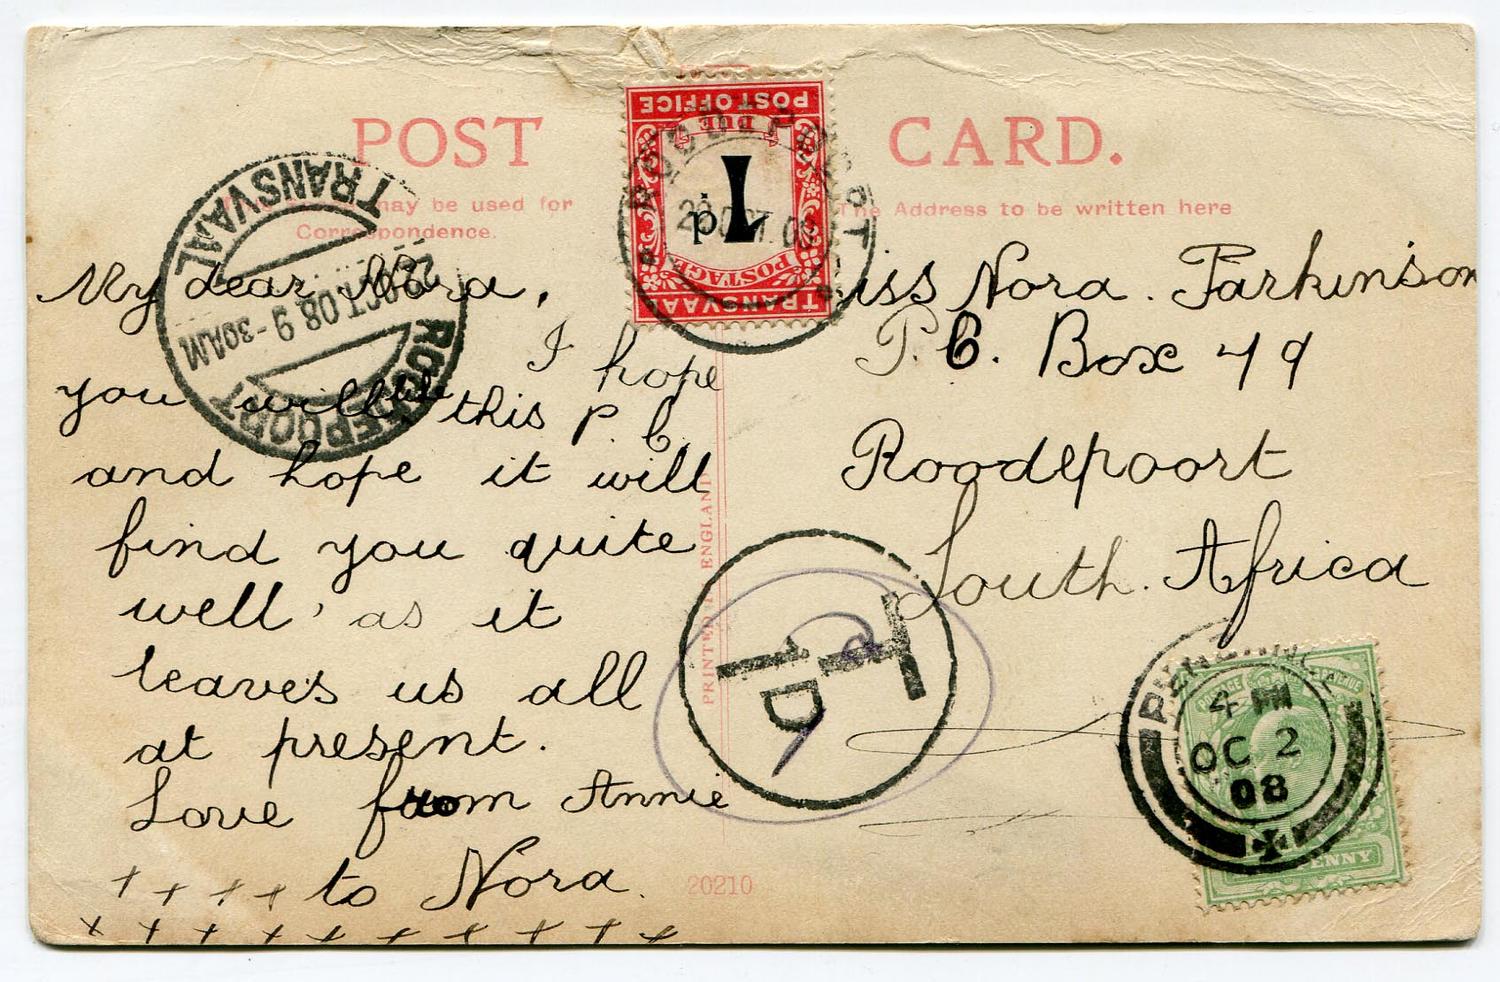 POST CARD.
This space may be used for Correspondence.
The Address to be written here
My dear Nora,
I hope
you will like this P. C.
and hope it will
find you quite
well, as it
leaves us all
at present.
Love from Annie
to Nora.
+ + + +
+ + + + + + + + + + +
Miss Nora. Parkinson
P. O. Box 49
Roodepoort
South. Africa
PRINTED IN ENGLAND
20210
POST OFFICE
DUE
1d
POSTAGE
TRANSVAAL
ROODEPOORT
OCT. 08
TRANSVAAL
OCT. 08 9-30AM
ROODEPOORT
T
1D
4 PM
OC 2
08
POSTAGE
PENNY